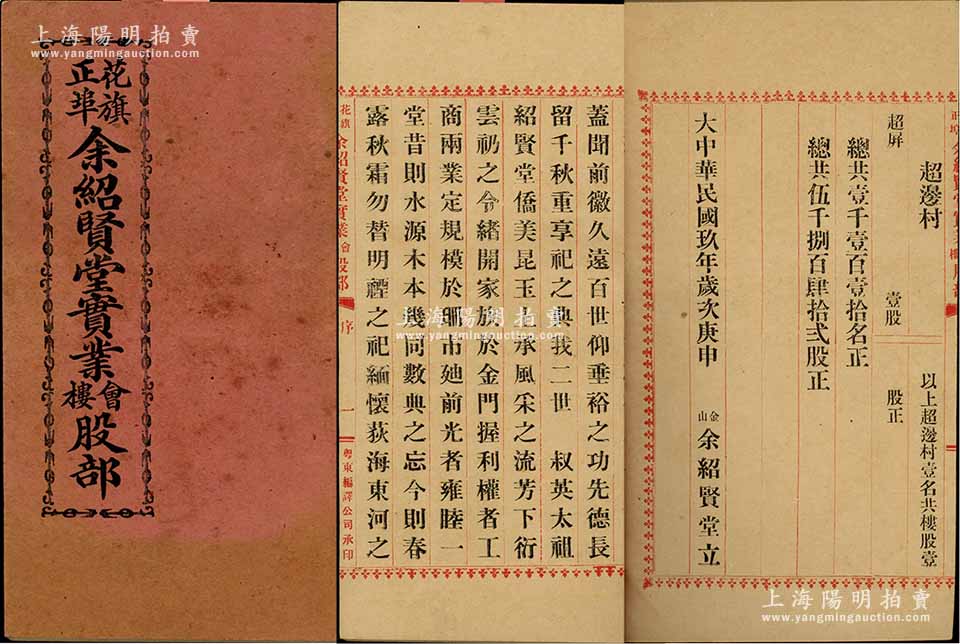 上海陽明拍賣
www.yangmingauction.com
花旗
正埠
余紹賢堂實業會樓股部
上海陽明拍賣
www.yangmingauction.com
蓋聞前徽久遠百世仰垂裕之功先德長
留千秋重享祀之典我二世 叔英太祖
紹賢堂僑美昆玉上承風采之流芳下衍
雲礽之令緒開家族於金門握利權者工
商兩業定規模於聊市廸前光者雍睦一
堂昔則水源木本幾同數典之忘今則春
露秋霜勿替明禋之祀緬懷荻海東河之
花旗 余紹賢堂實業會 股部
序
一
粵東編譯公司承印
上海陽明拍賣
www.yangmingauction.com
超邊村
以上超邊村壹名共樓股壹
股正
超屏
壹股
總共壹千壹百壹拾名正
總共伍千捌百肆拾弍股正
大中華民國玖年歲次庚申
金山 余紹賢堂立
上海陽明拍賣
www.yangmingauction.com
上海陽明拍賣
www.yangmingauction.com